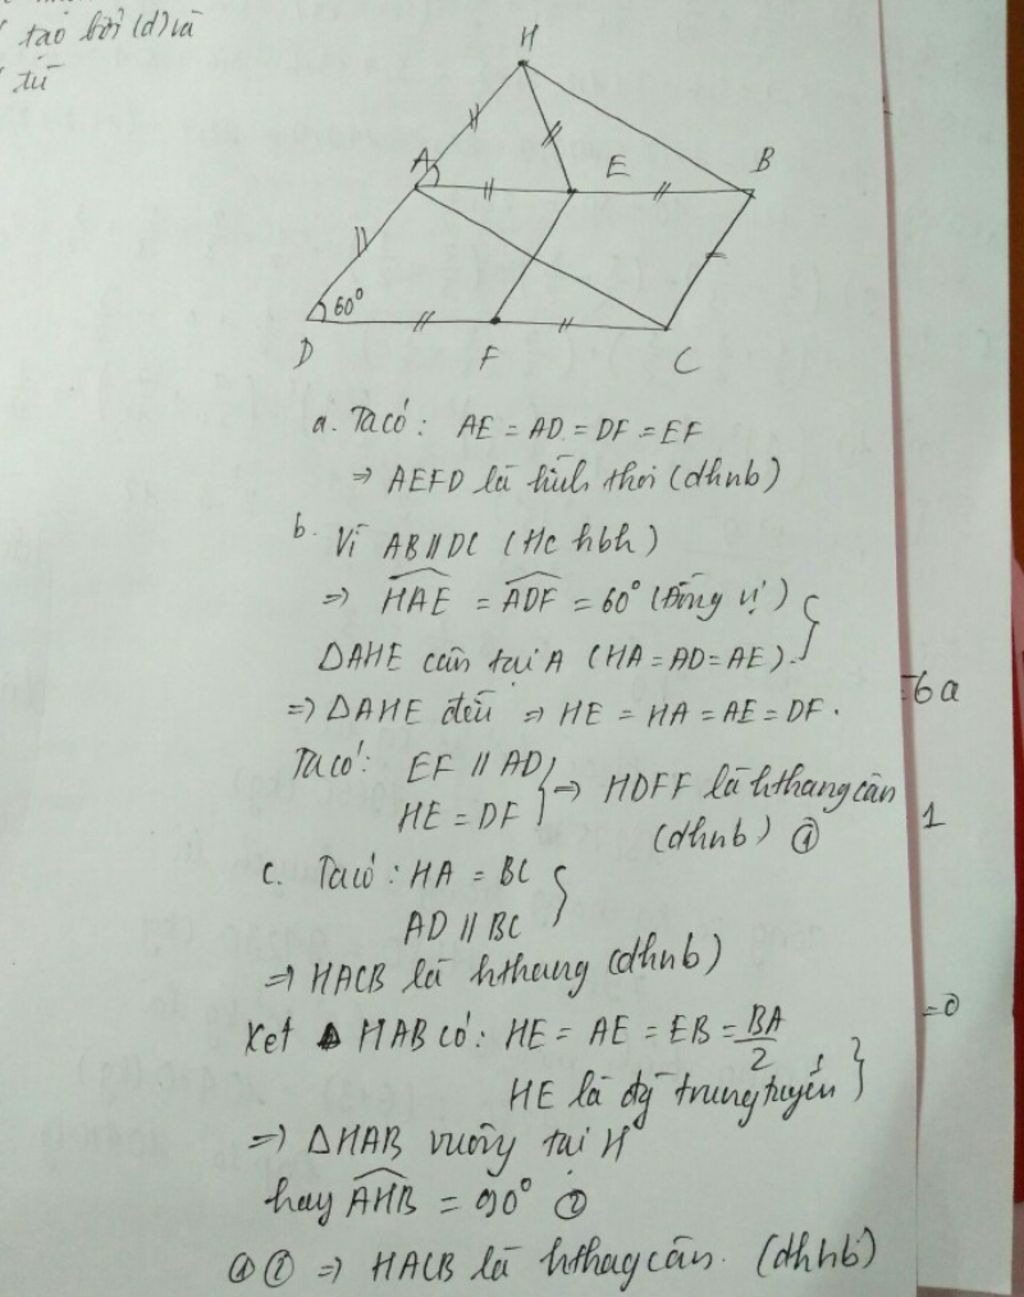 tạo bởi (d) và
từ
H
A
E
B
60°
D
F
C
a. Ta có: AE = AD = DF = EF
=> AEFD là hình thoi (dhnb)
b. Vì AB // DC (Hc hbh)
=> HAE = ADF = 60° (Đồng vị)
ΔAHE cân tại A (HA = AD = AE).
=> ΔAHE đều => HE = HA = AE = DF.
Ta có: EF // AD
HE = DF
=> HDFF là hthang cân
(dhnb) ①
c. Ta có: HA = BC
AD // BC
=> HACB là hthang (dhnb)
Xét Δ HAB có: HE = AE = EB = BA/2
HE là đg trung tuyến
=> ΔHAB vuông tại H
hay AHB = 90° ②
① ② => HACB là hthag cân. (dhnb)
=6a
1
=0